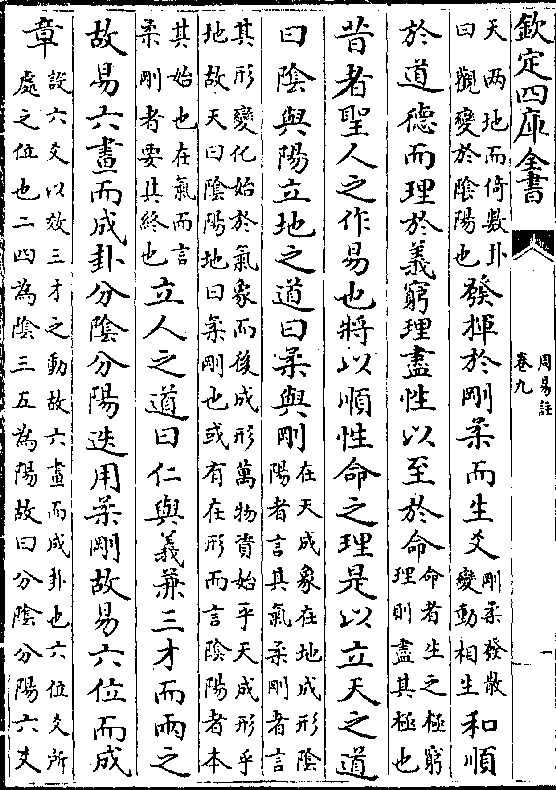 欽定四庫全書
周易註
卷九
一
天两地而倚數卦
曰觀變於陰陽也
發揮於剛柔而生爻
剛柔發散
變動相生
和順
於道德而理於義窮理盡性以至於命
命者生之極窮
理則盡其極也
昔者聖人之作易也將以順性命之理是以立天之道
曰陰與陽立地之道曰柔與剛
在天成象在地成形陰
陽者言其氣柔剛者言
其形變化始於氣象而後成形萬物資始乎天成形乎
地故天曰陰陽地曰柔剛也或有在形而言陰陽者本
其始也在氣而言
柔剛者要其終也
立人之道曰仁與義兼三才而兩之
故易六畫而成卦分陰分陽迭用柔剛故易六位而成
章
設六爻以效三才之動故六畫而成卦也六位爻所
處之位也二四為陰三五為陽故曰分陰分陽六爻